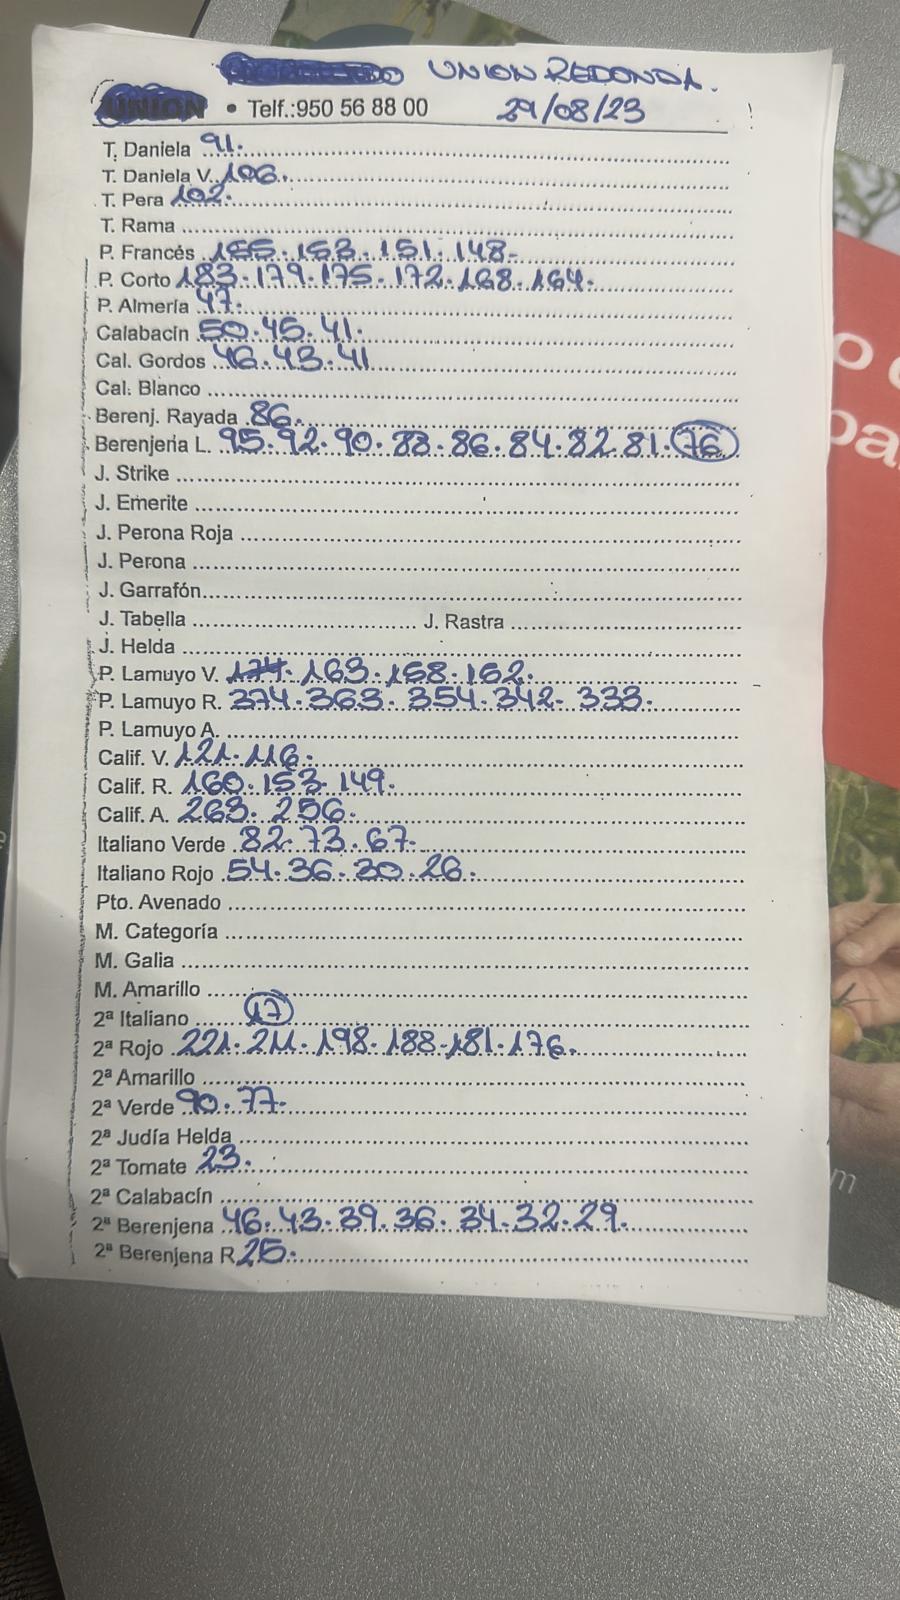 UNION REDONDA.
UNION • Telf.:950 56 88 00 29/08/23
T. Daniela 91.
T. Daniela V. 106.
T. Pera 102.
T. Rama
P. Francés 155.153.151.148.
P. Corto 183.179.175.172.168.164.
P. Almería 47.
Calabacín 50.45.41.
Cal. Gordos 46.43.41
Cal. Blanco
Berenj. Rayada 86.
Berenjena L. 95.92.90.88.86.84.82.81.76
J. Strike
J. Emerite
J. Perona Roja
J. Perona
J. Garrafón
J. Tabella J. Rastra
J. Helda
P. Lamuyo V. 174.163.158.152.
P. Lamuyo R. 374.363.354.342.333.
P. Lamuyo A.
Calif. V. 121.116.
Calif. R. 160.153.149.
Calif. A. 263.256.
Italiano Verde 82.73.67.
Italiano Rojo 54.36.30.26.
Pto. Avenado
M. Categoría
M. Galia
M. Amarillo
2ª Italiano 17
2ª Rojo 221.211.198.188.181.176.
2ª Amarillo
2ª Verde 90.77.
2ª Judía Helda
2ª Tomate 23.
2ª Calabacín
2ª Berenjena 46.43.39.36.34.32.29.
2ª Berenjena R 25.
o
pa
m